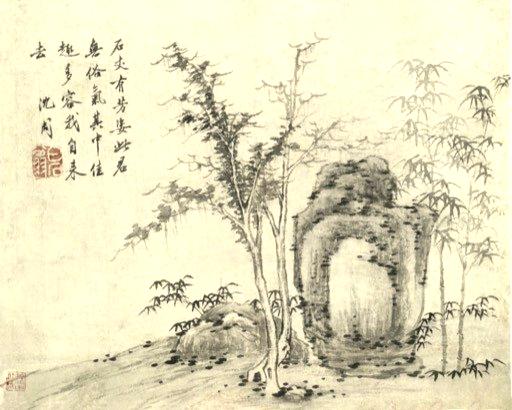 石丈有芳姿此君
無俗氣其中佳
趣多容我自來
去 沈周